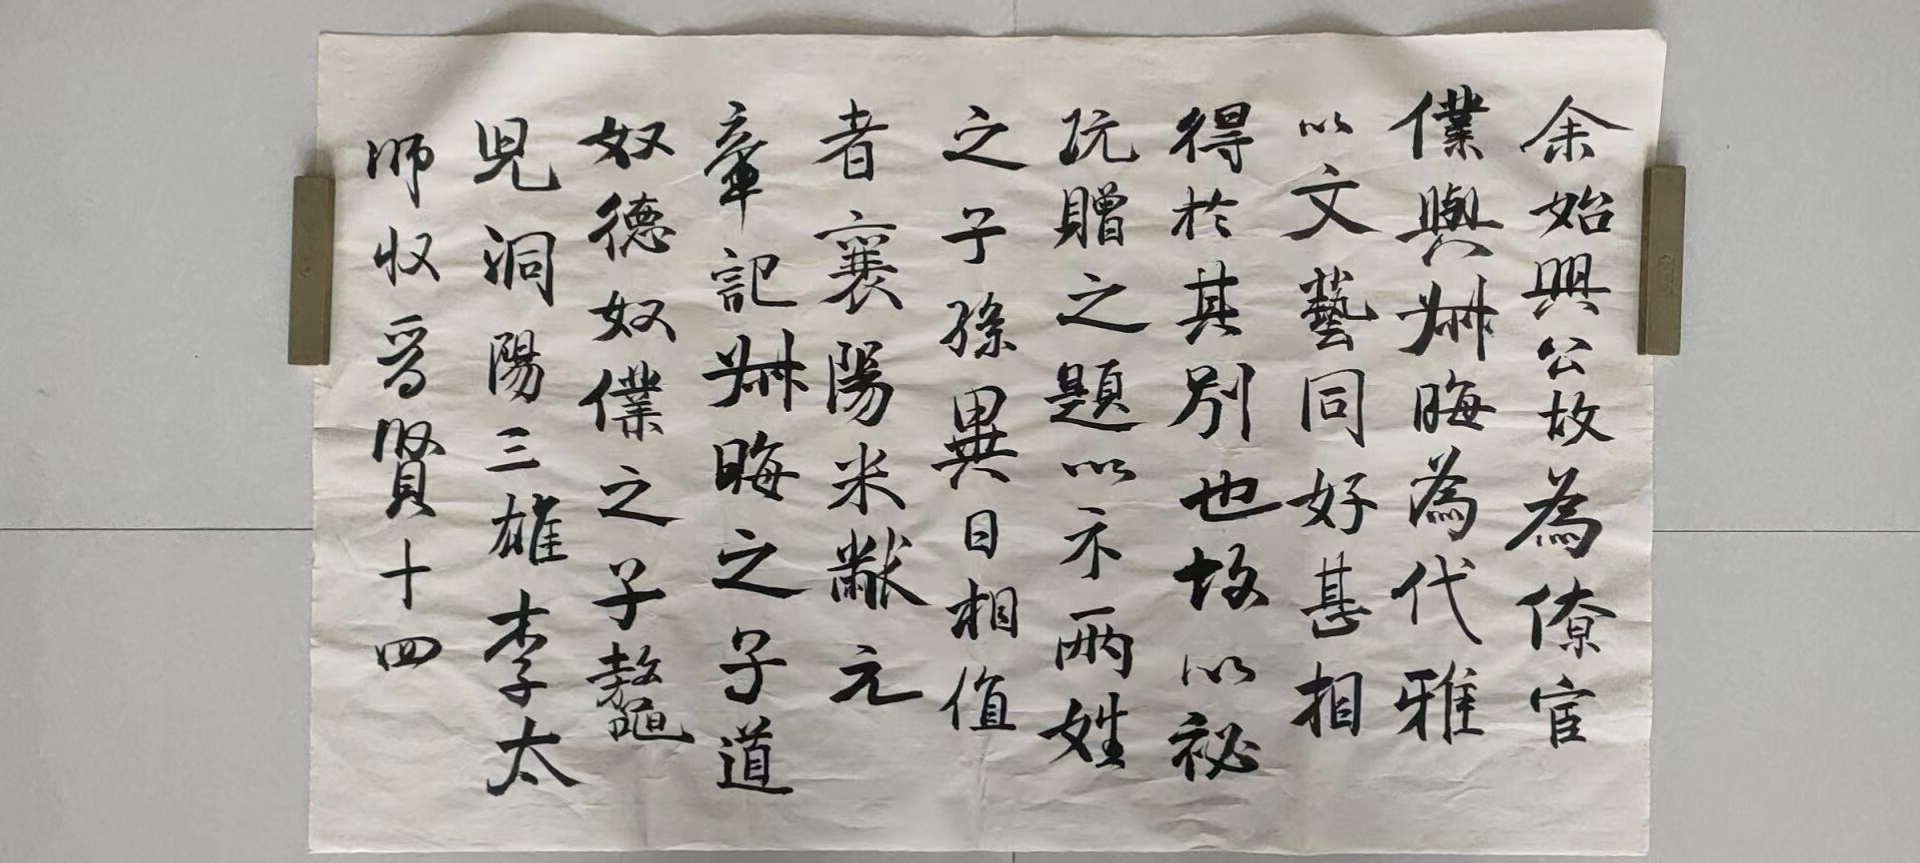 余始興公故為僚宦
僕與叔晦為代雅
以文藝同好甚相
得於其別也故以祕
玩贈之題以示兩姓
之子孫異日相值
者襄陽米黻元
章記叔晦之子道
奴德奴僕之子鼇
兒洞陽三雄李太
師收晉賢十四